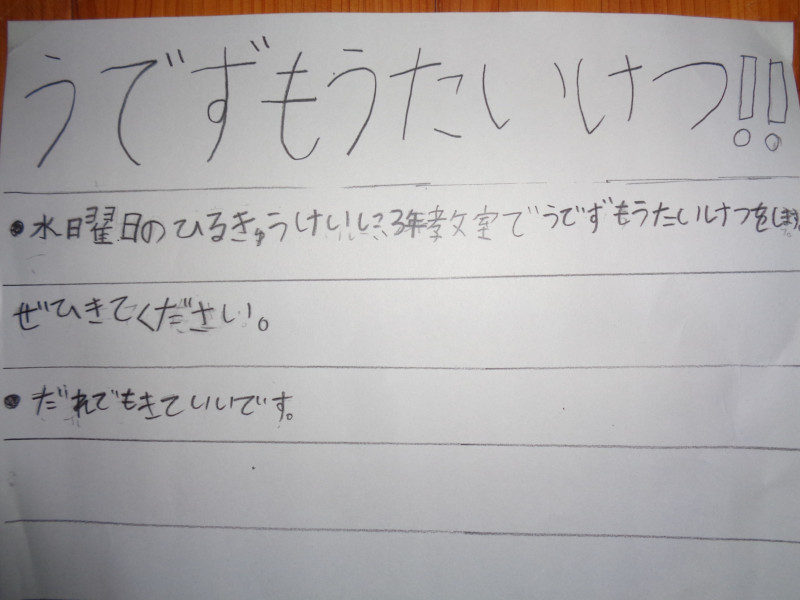 うでずもうたいけつ!!
●水曜日のひるきゅうけいに3年教室でうでずもうたいけつをします。
ぜひきてください。
●だれでもきていいです。